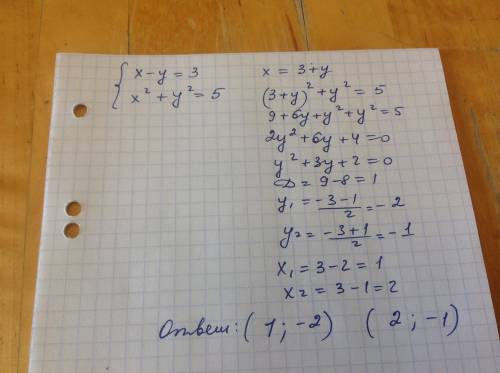 { x - y = 3
x² + y² = 5
x = 3 + y
(3+y)² + y² = 5
9 + 6y + y² + y² = 5
2y² + 6y + 4 = 0
y² + 3y + 2 = 0
D = 9 - 8 = 1
y₁ = -3-1/2 = -2
y₂ = -3+1/2 = -1
x₁ = 3 - 2 = 1
x₂ = 3 - 1 = 2
Ответ: (1; -2) (2; -1)